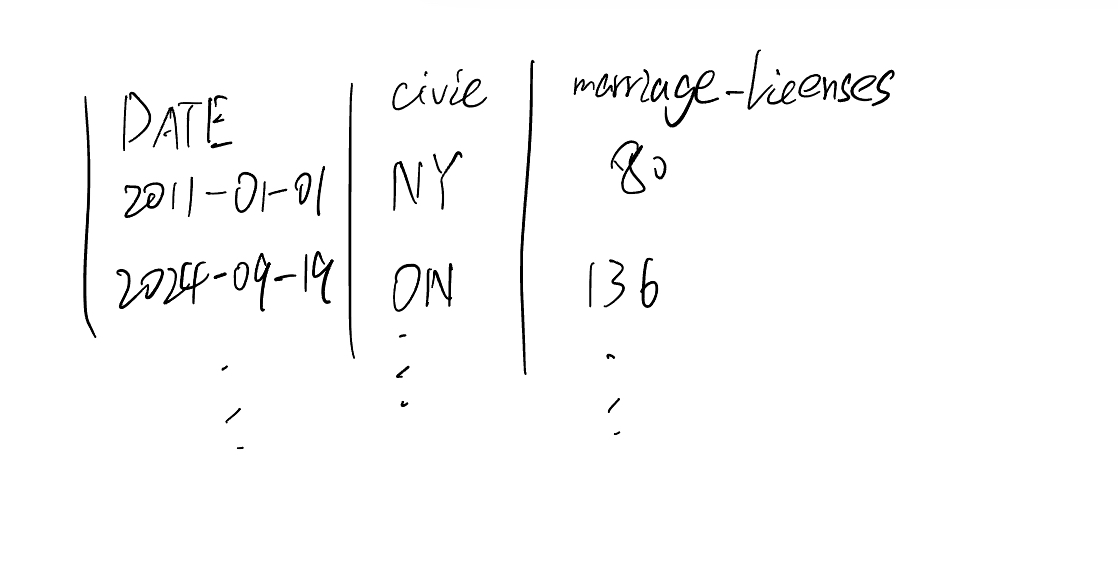 DATE civic marriage-licenses
2011-01-01 NY 80
2024-09-19 ON 136